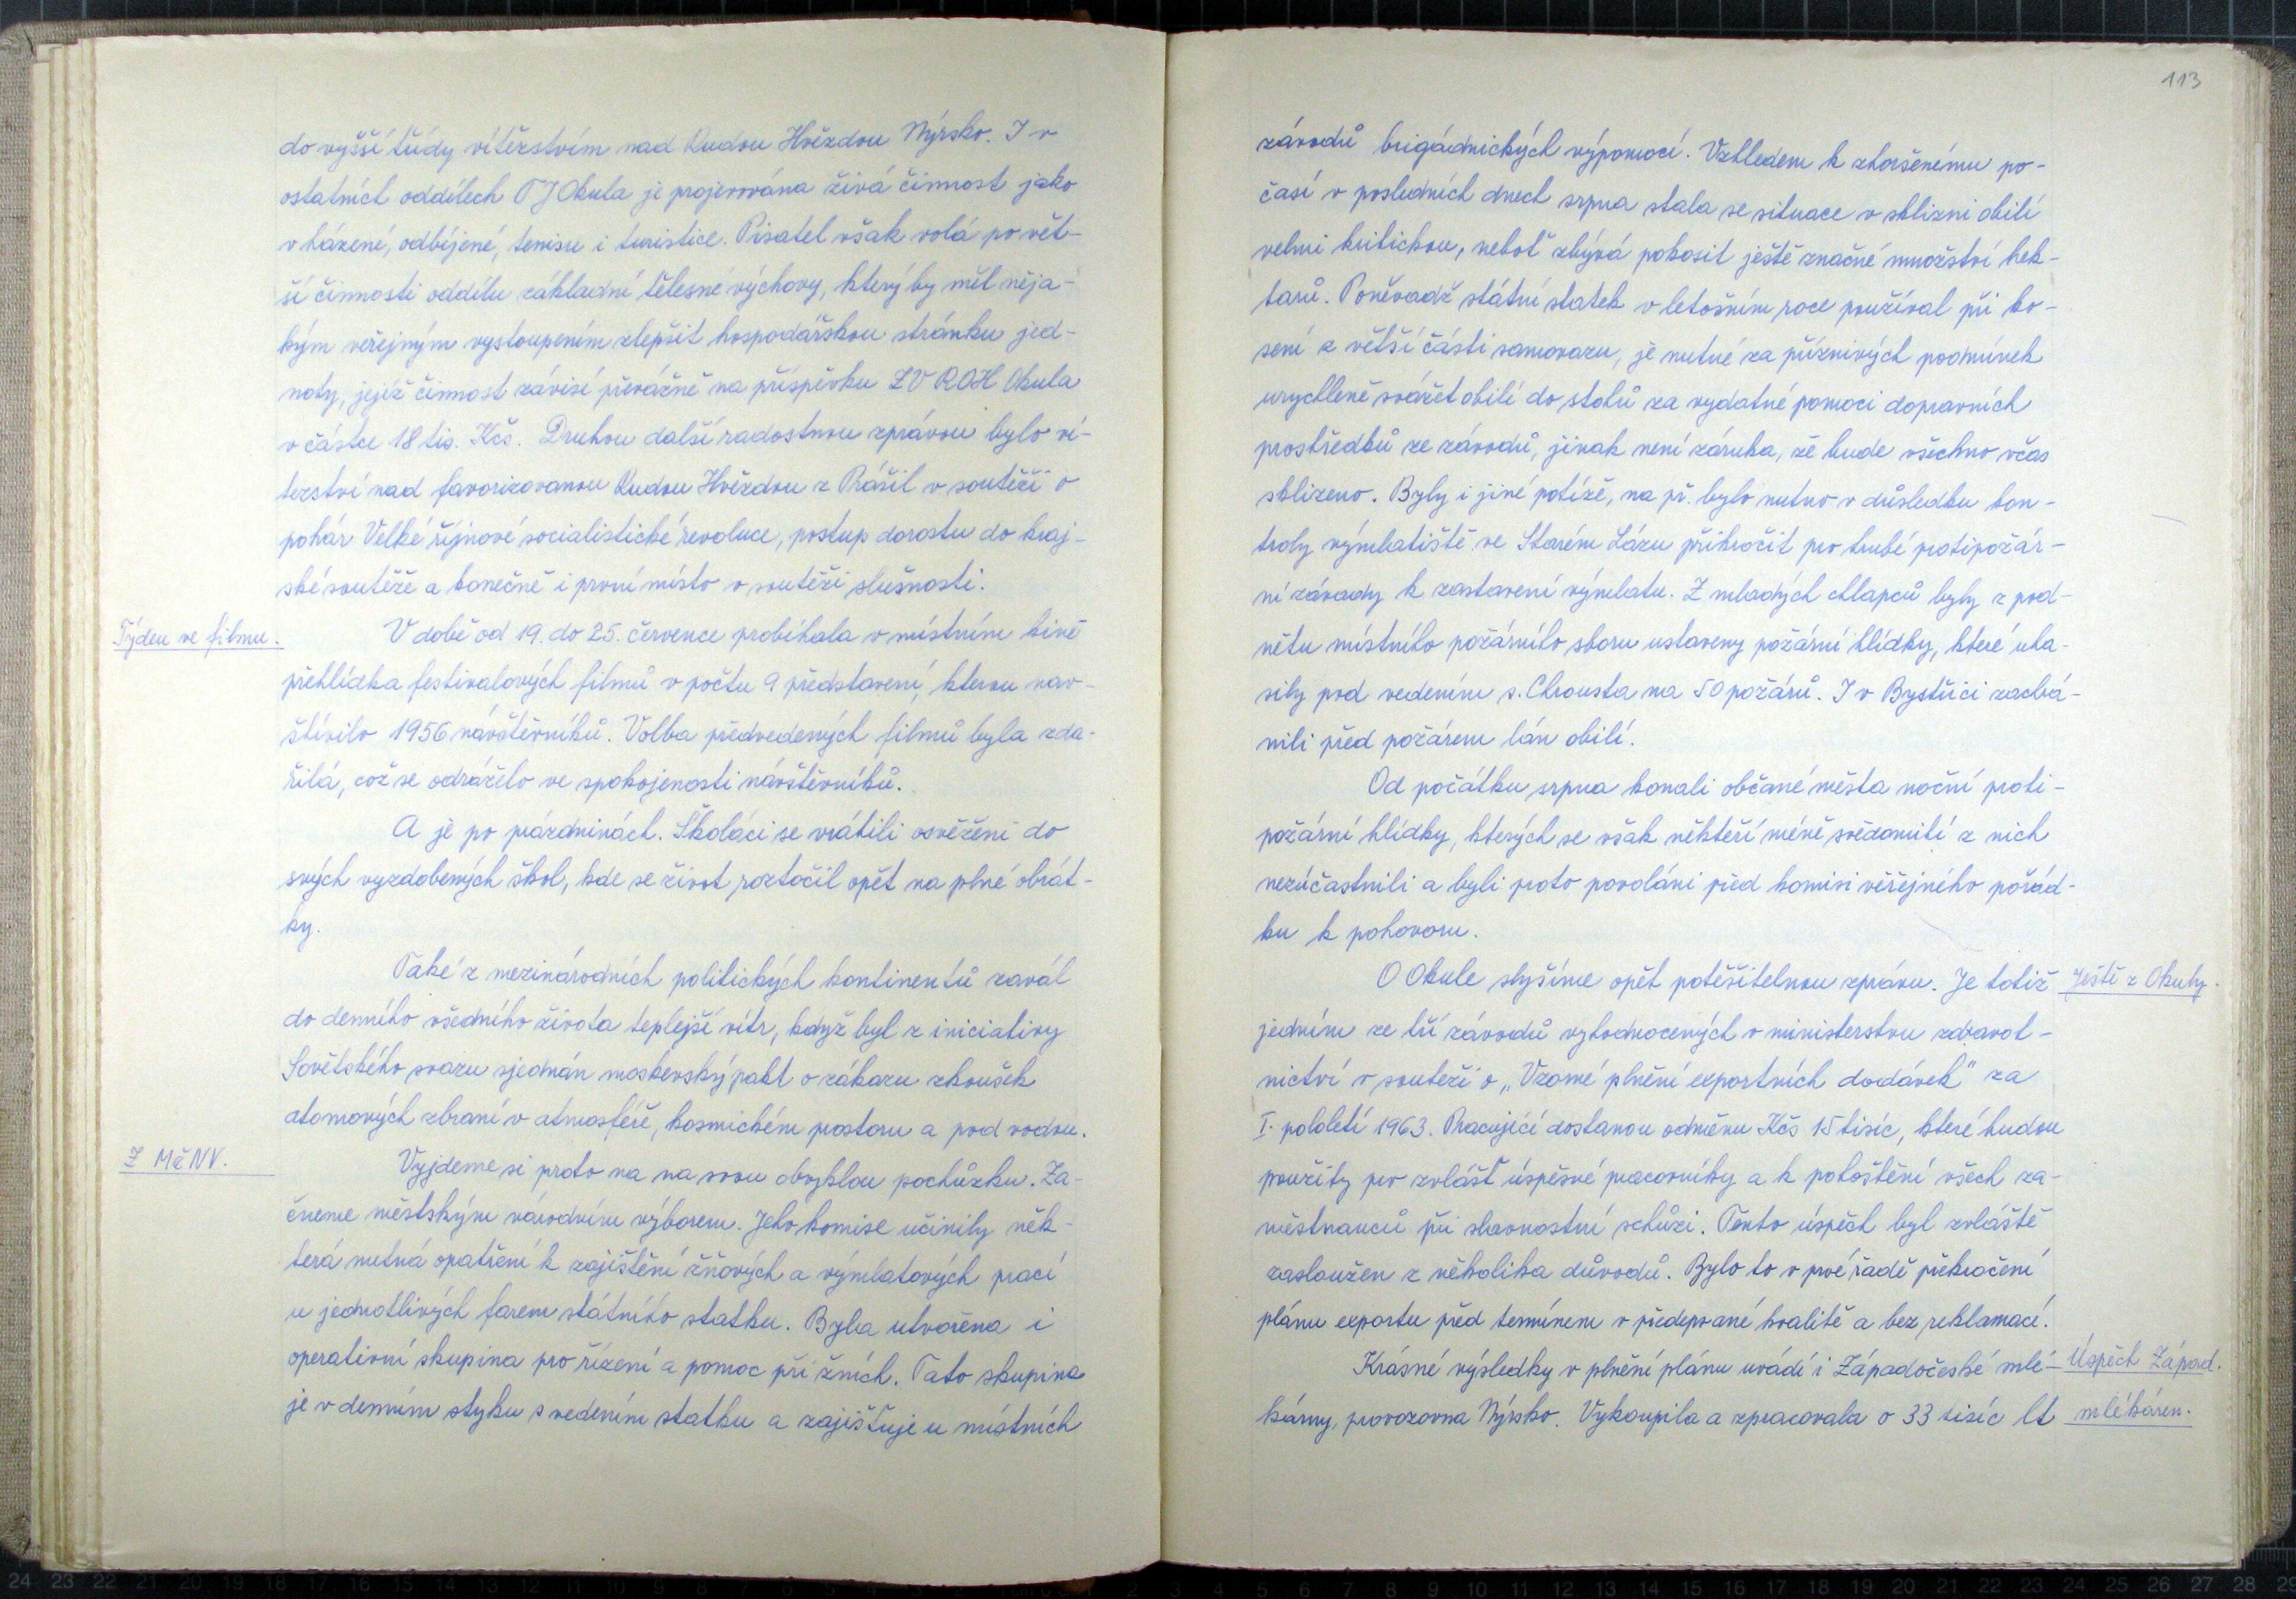 do vyšší třídy vítězstvím nad Rudou Hvězdou Nýrsko. I v
ostatních oddílech TJ Okula je projevována živá činnost jako
v házené, odbíjené, tenisu i turistice. Pisatel však volá po vět-
ší činnosti oddílu základní tělesné výchovy, který by měl něja-
kým veřejným vystoupením zlepšit hospodářskou stránku jed-
noty, jejíž činnost závisí převážně na příspěvku ZV ROH Okula
v částce 18 tis. Kčs. Druhou další radostnou zprávou bylo ví-
tezství nad favorizovanou Rudou Hvězdou z Prášil v soutěži o
pohár Velké říjnové socialistické revoluce, postup dorostu do kraj-
ské soutěže a konečně i první místo v soutěži slušnosti.
Týden ve filmu.
V době od 19. do 25. července probíhala v místním kině
přehlídka festivalových filmů v počtu 9 představení, kterou nav-
štívilo 1956 návštěvníků. Volba předvedených filmů byla zda-
řilá, což se odráželo ve spokojenosti návštěvníků.
A je po prázdninách. Školáci se vrátili osvěženi do
svých vyzdobených škol, kde se život roztočil opět na plné obrát-
ky.
Také z mezinárodních politických kontinentů zavál
do denního všedního života teplejší vítr, když byl z iniciativy
Sovětského svazu sjednán moskevský pakt o zákazu zkoušek
atomových zbraní v atmosféře, kosmickém prostoru a pod vodou.
Z MěNV.
Vyjdeme si proto na na svou obvyklou pochůzku. Za-
čneme městským národním výborem. Jeho komise učinily něk-
terá nutná opatření k zajištění žňových a výmlatových prací
u jednotlivých farem státního statku. Byla utvořena i
operativní skupina pro řízení a pomoc při žních. Tato skupina
je v denním styku s vedením statku a zajišťuje u místních
113
závodů brigádnických výpomocí. Vzhledem k zhoršenému po-
časí v posledních dnech srpna stala se situace v sklizni obilí
velmi kritickou, neboť zbývá pokosit ještě značné množství hek-
tarů. Poněvadž státní statek v letošním roce používal při ko-
sení z větší části samovazu, je nutné za příznivých podmínek
urychleně svážet obilí do stohů za vydatné pomoci dopravních
prostředků ze závodů, jinak není záruka, že bude všechno včas
sklizeno. Byly i jiné potíže, na př. bylo nutno v důsledku kon-
troly výmlatiště ve Starém Lázu přikročit pro hrubé protipožár-
ní závady k zastavení výmlatu. Z mladých chlapců byly z pod-
nětu místního požárního sboru ustaveny požární hlídky, které uha-
sily pod vedením s. Chrousta na 50 požárů. I v Bystřici zachrá-
nili před požárem lán obilí.
Od počátku srpna konali občané města noční proti-
požární hlídky, kterých se však někteří méně svědomití z nich
nezúčastnili a byli proto povoláni před komisi veřejného pořád-
ku k pohovoru.
O Okule slyšíme opět potěšitelnou zprávu. Je totiž
Ještě z Okuly.
jedním ze tří závodů vyhodnocených v ministerstvu zdravot-
nictví v soutěži o „Vzorné plnění exportních dodávek" za
I. pololetí 1963. Pracující dostanou odměnu Kčs 15 tisíc, které budou
použity pro zvlášť úspěšné pracovníky a k pohoštění všech za-
městnanců při slavnostní schůzi. Tento úspěch byl zvláště
zasloužen z několika důvodů. Bylo to v prvé řadě překročení
plánu exportu před termínem v předepsané kvalitě a bez reklamací.
Krásné výsledky v plnění plánu uvádí i Západočeské mlé-
Úspěch Západ.
kárny, provozovna Nýrsko. Vykoupila a zpracovala o 33 tisíc lt
mlékáren.